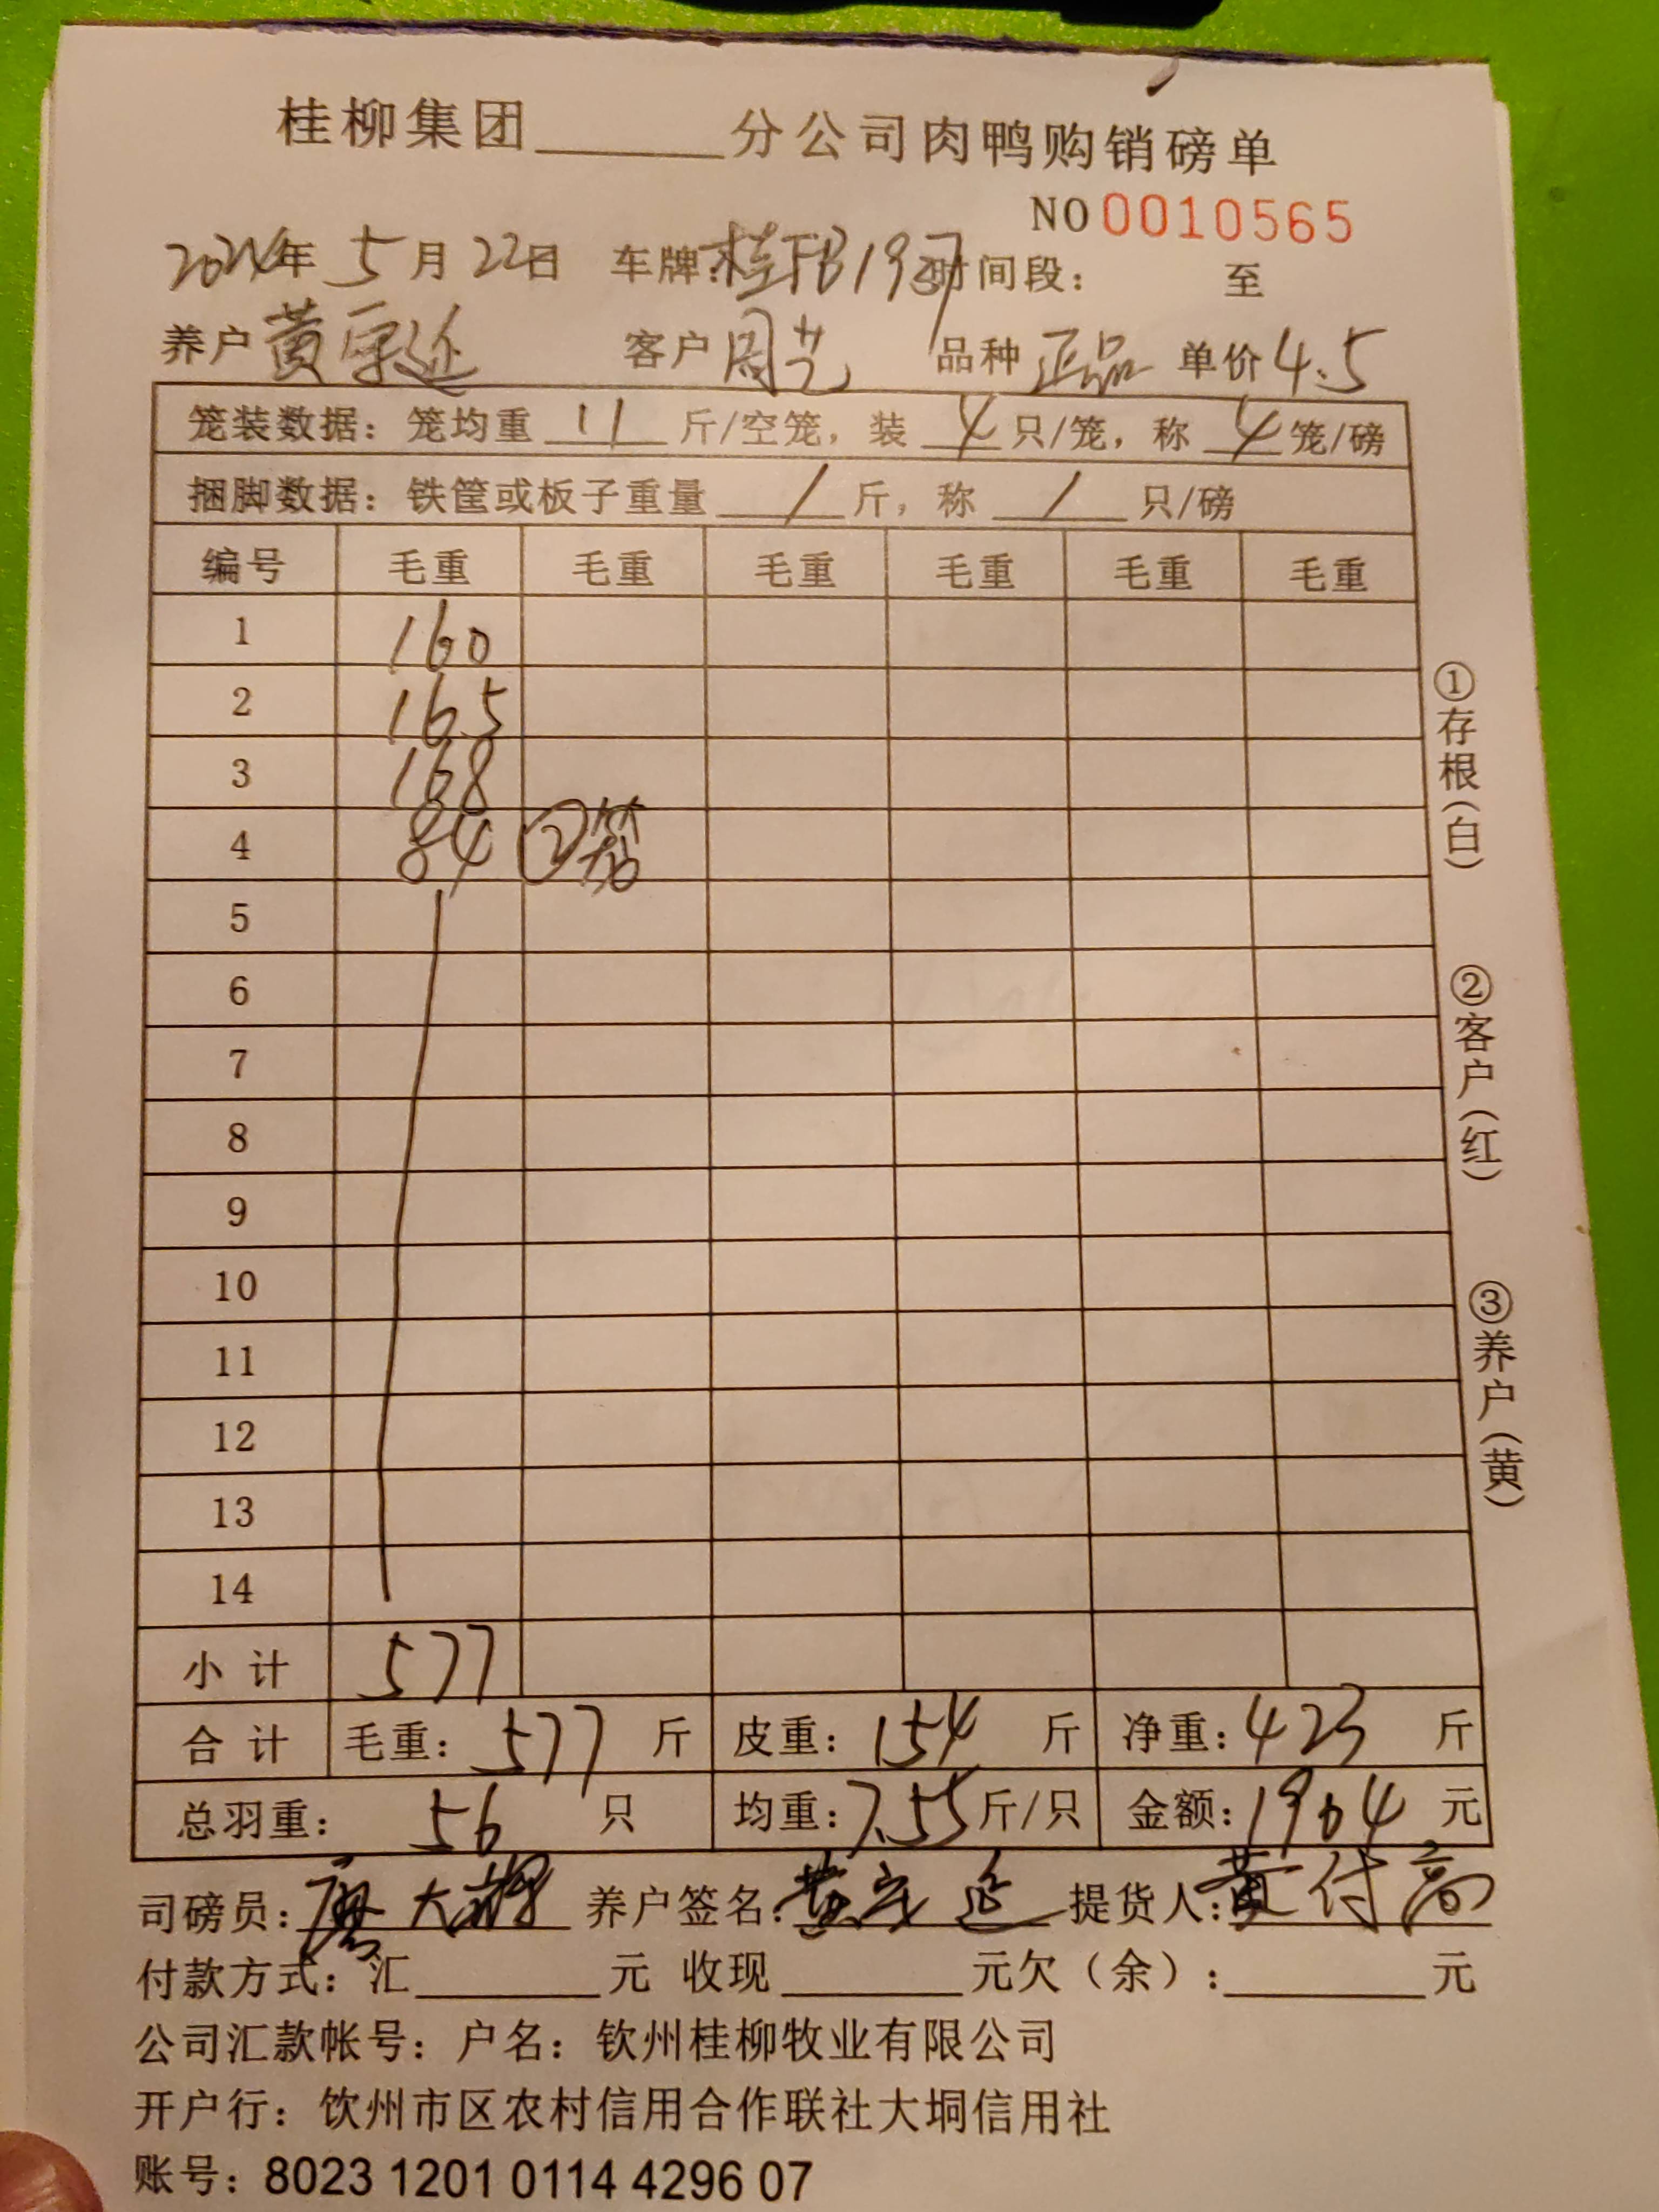 桂柳集团______分公司肉鸭购销磅单
NO 0010565
2024年 5月 22日 车牌:桂FB1937 时间段: 至
养户 黄宗延 客户 周艺 品种 正品 单价 4.5
笼装数据: 笼均重 11 斤/空笼, 装 4 只/笼, 称 4 笼/磅
捆脚数据: 铁筐或板子重量 / 斤, 称 / 只/磅
编号 毛重 毛重 毛重 毛重 毛重 毛重
1 160
2 165
3 168
4 84 ②笼
5
6
7
8
9
10
11
12
13
14
小计 577
合计 毛重: 577 斤 皮重: 154 斤 净重: 423 斤
总羽重: 56 只 均重: 7.55 斤/只 金额: 1904 元
司磅员: 养户签名: 黄宗延 提货人: 黄付高
付款方式: 汇______元 收现______元欠(余): ______元
公司汇款帐号: 户名: 钦州桂柳牧业有限公司
开户行: 饮州市区农村信用合作联社大垌信用社
账号: 8023 1201 0114 4296 07
①存根(白)
②客户(红)
③养户(黄)